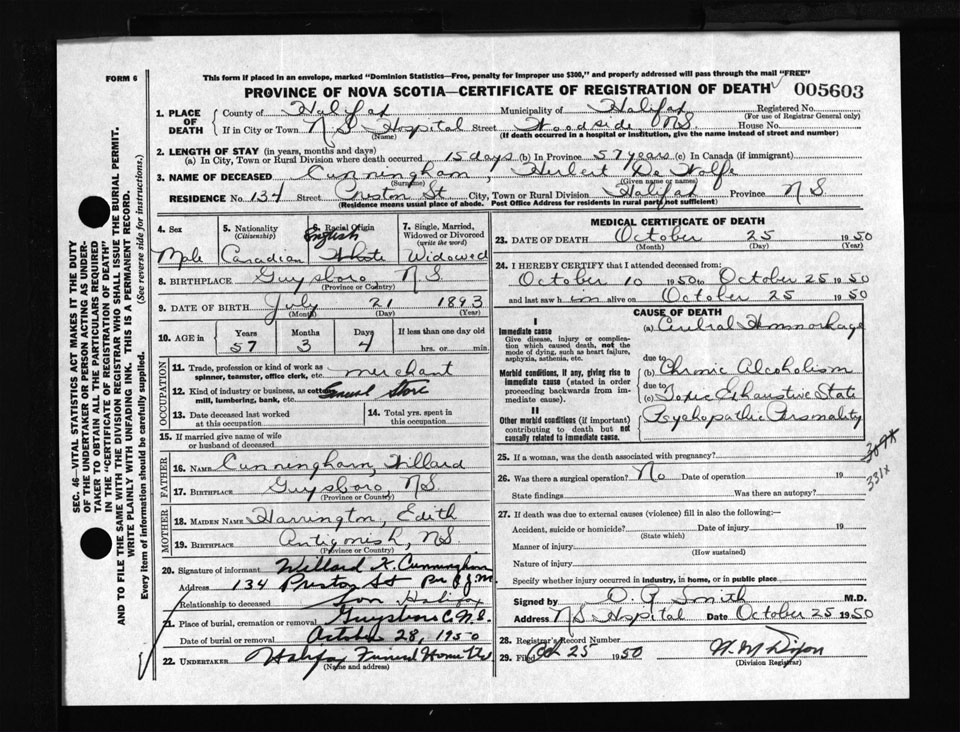 FORM 6
This form if placed in an envelope, marked "Dominion Statistics—Free, penalty for improper use $300," and properly addressed will pass through the mail "FREE"
PROVINCE OF NOVA SCOTIA—CERTIFICATE OF REGISTRATION OF DEATH 005603
1. PLACE OF DEATH
County of Halifax Municipality of Halifax Registered No.
(For use of Registrar General only)
If in City or Town N S Hospital Street Woodside N.S. House No.
(Name) (If death occurred in a hospital or institution, give the name instead of street and number)
2. LENGTH OF STAY (in years, months and days)
(a) In City, Town or Rural Division where death occurred 15 days (b) In Province 57 years (c) In Canada (if immigrant)
3. NAME OF DECEASED Cunningham, Herbert De Wolfe
(Surname) (Given name or names)
RESIDENCE No. 134 Street St City, Town or Rural Division Halifax Province N S
(Residence means usual place of abode. Post Office Address for residents in rural parts not sufficient)
4. Sex
Male
5. Nationality
(Citizenship)
Canadian
6. Racial Origin
English
White
7. Single, Married, Widowed or Divorced
(write the word)
Widowed
8. BIRTHPLACE Guysboro, N S
(Province or Country)
9. DATE OF BIRTH July 21 1893
(Month) (Day) (Year)
10. AGE in
Years Months Days If less than one day old
57 3 4 hrs. or min.
OCCUPATION
11. Trade, profession or kind of work as spinner, teamster, office clerk, etc. merchant
12. Kind of industry or business, as cotton mill, lumbering, bank, etc. General Store
13. Date deceased last worked at this occupation
14. Total yrs. spent in this occupation
15. If married give name of wife or husband of deceased
FATHER
16. NAME Cunningham, Willard
17. BIRTHPLACE Guysboro, N S
(Province or Country)
MOTHER
18. MAIDEN NAME Harrington, Edith
19. BIRTHPLACE Antigonish, N.S.
(Province or Country)
20. Signature of informant Willard K. Cunningham
Address 134 Preston St Per J.J.M.
Relationship to deceased Son Halifax
21. Place of burial, cremation or removal Guysboro C. N.S.
Date of burial or removal October 28, 1950
22. UNDERTAKER Halifax Funeral Home
(Name and address)
MEDICAL CERTIFICATE OF DEATH
23. DATE OF DEATH October 25 1950
(Month) (Day) (Year)
24. I HEREBY CERTIFY that I attended deceased from:
October 10 1950 to October 25 1950
and last saw h im alive on October 25 1950
CAUSE OF DEATH
I
Immediate cause
Give disease, injury or complication which caused death, not the mode of dying, such as heart failure, asphyxia, asthenia, etc.
(a) Cerebral Hemmorhage
due to
Morbid conditions, if any, giving rise to immediate cause (stated in order proceeding backwards from immediate cause).
(b) Chronic Alcoholism
due to
(c) Toxic Exhaustive State
II
Other morbid conditions (if important) contributing to death but not causally related to immediate cause.
Psychopathic Personality
25. If a woman, was the death associated with pregnancy?
331x
26. Was there a surgical operation? No Date of operation 19
State findings Was there an autopsy?
27. If death was due to external causes (violence) fill in also the following:—
Accident, suicide or homicide? Date of injury 19
(State which)
Manner of injury
(How sustained)
Nature of injury
Specify whether injury occurred in industry, in home, or in public place
Signed by D. G. Smith M.D.
Address N S Hospital Date October 25 1950
28. Registrar's Record Number
29. Filed Oct 25 1950 Dixon
(Division Registrar)
SEC. 46—VITAL STATISTICS ACT MAKES IT THE DUTY
OF THE UNDERTAKER OR PERSON ACTING AS UNDERTAKER TO OBTAIN ALL THE PARTICULARS REQUIRED
IN THE "CERTIFICATE OF REGISTRATION OF DEATH"
AND TO FILE THE SAME WITH THE DIVISION REGISTRAR WHO SHALL ISSUE THE BURIAL PERMIT.
WRITE PLAINLY WITH UNFADING INK. THIS IS A PERMANENT RECORD.
Every item of information should be carefully supplied. (See reverse side for instructions.)